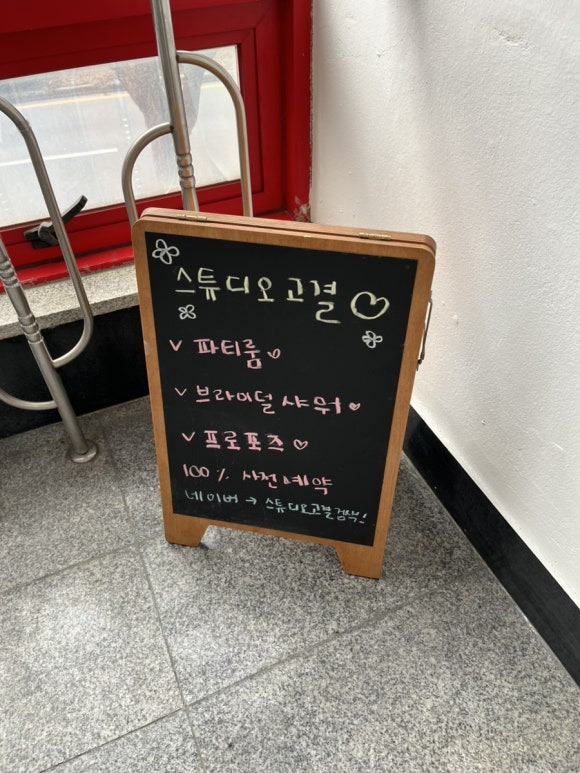 스튜디오고결 ♡
v 파티룸 ♡
v 브라이덜 샤워 ♡
v 프로포즈 ♡
100% 사전예약
네이버 → 스튜디오고결검색!